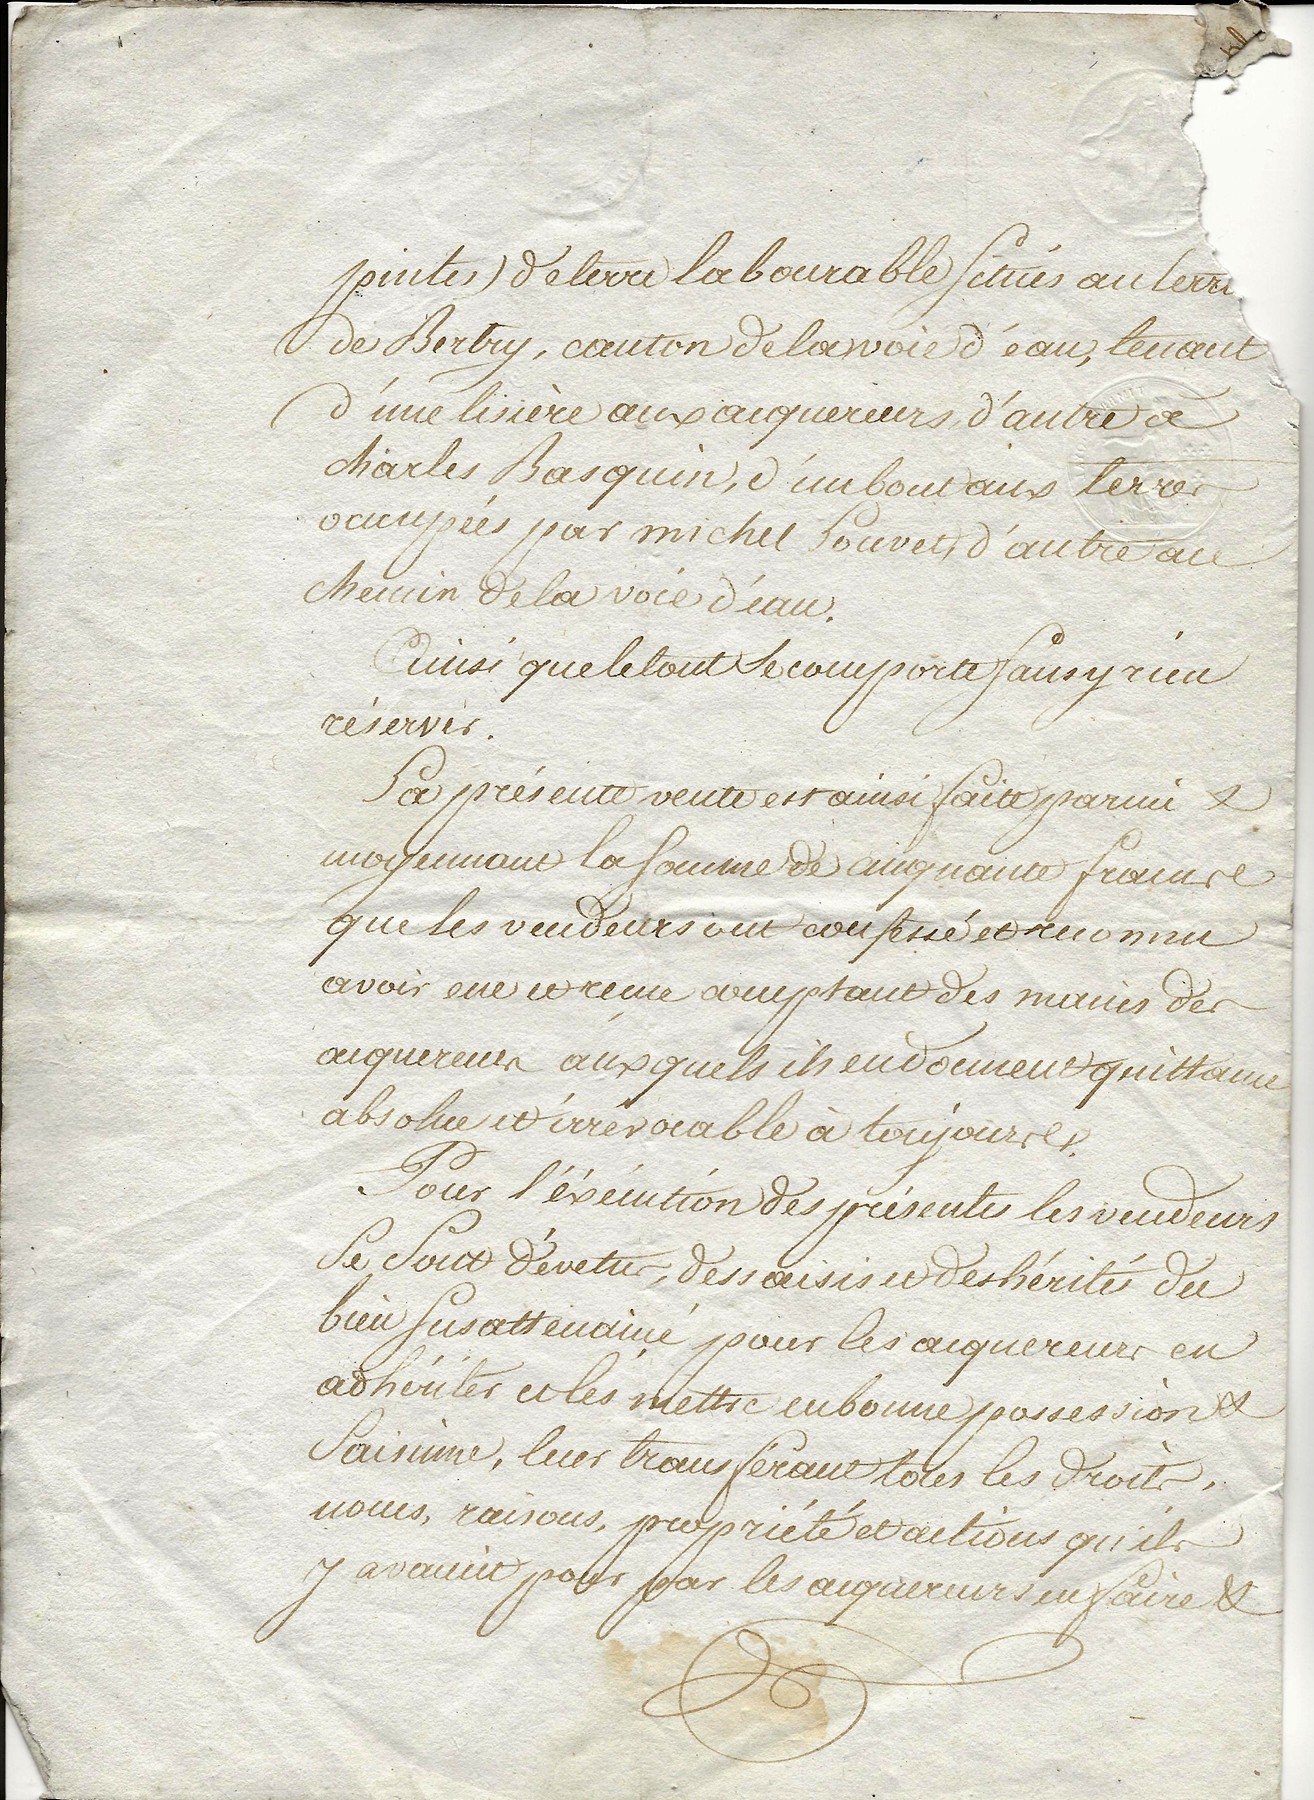 pintes) de terre labourable situés au terri
de Bertry, canton de la voie d'eau, tenant
d'une lisière aux acquereurs, d'autre a
Charles Basquin, d'un bout aux terres
occupées par michel Louvet, d'autre au
chemin de la voie d'eau.
Ainsi que le tout se comporte sans y rien
réserver.
La présente vente est ainsi faite parmi &
moyennant la somme de cinquante francs
que les vendeurs ont confessé et reconnu
avoir eue et recue comptant des mains des
acquereurs auxquels ils en donnent quittance
absolue et irrévocable à toujours.
Pour l'éxécution des présentes les vendeurs
se sont dévetus, dessaisis et deshérités du
bien susattenainé pour les acquereurs en
adhériter et les mettre en bonne possession &
saisinne, leur transférant tous les droits,
noms, raisons, propriété et actions qu'ils
y avaient pour par les acquereurs en faire &